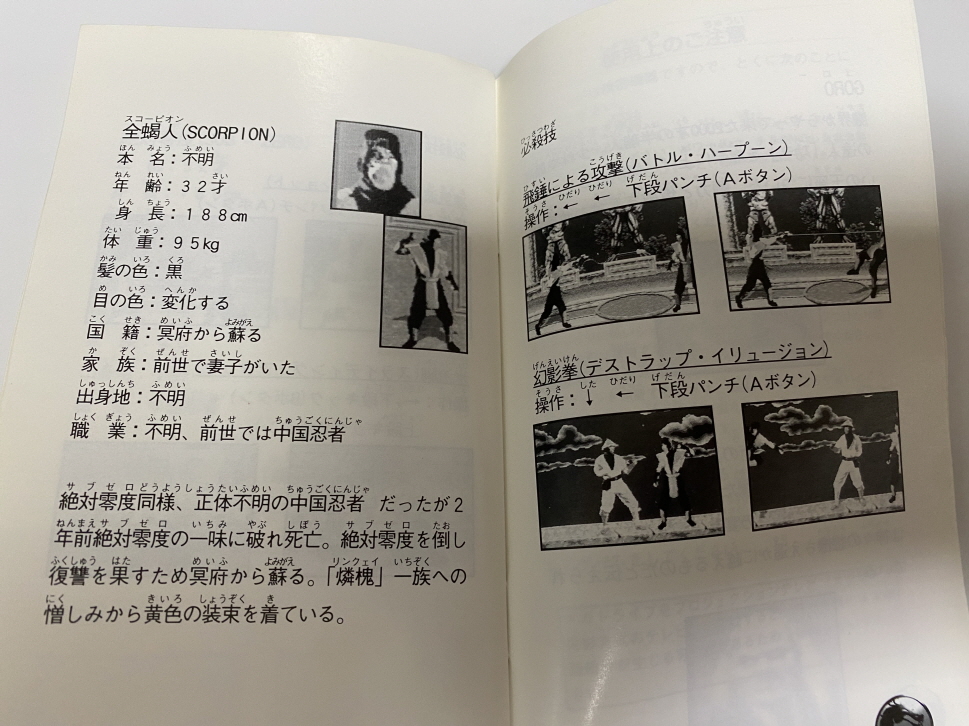 全蝎人(SCORPION)
本名:不明
年齢:32才
身長:188cm
体重:95kg
髪の色:黒
目の色:変化する
国籍:冥府から蘇る
家族:前世で妻子がいた
出身地:不明
職業:不明、前世では中国忍者
絶対零度同様、正体不明の中国忍者 だったが2
年前絶対零度の一味に破れ死亡。絶対零度を倒し
復讐を果すため冥府から蘇る。「燐槐」一族への
憎しみから黄色の装束を着ている。
必殺技
飛錘による攻撃(バトル・ハープーン)
操作:← ← 下段パンチ(Aボタン)
幻影拳(デストラップ・イリュージョン)
操作:↓ ← 下段パンチ(Aボタン)